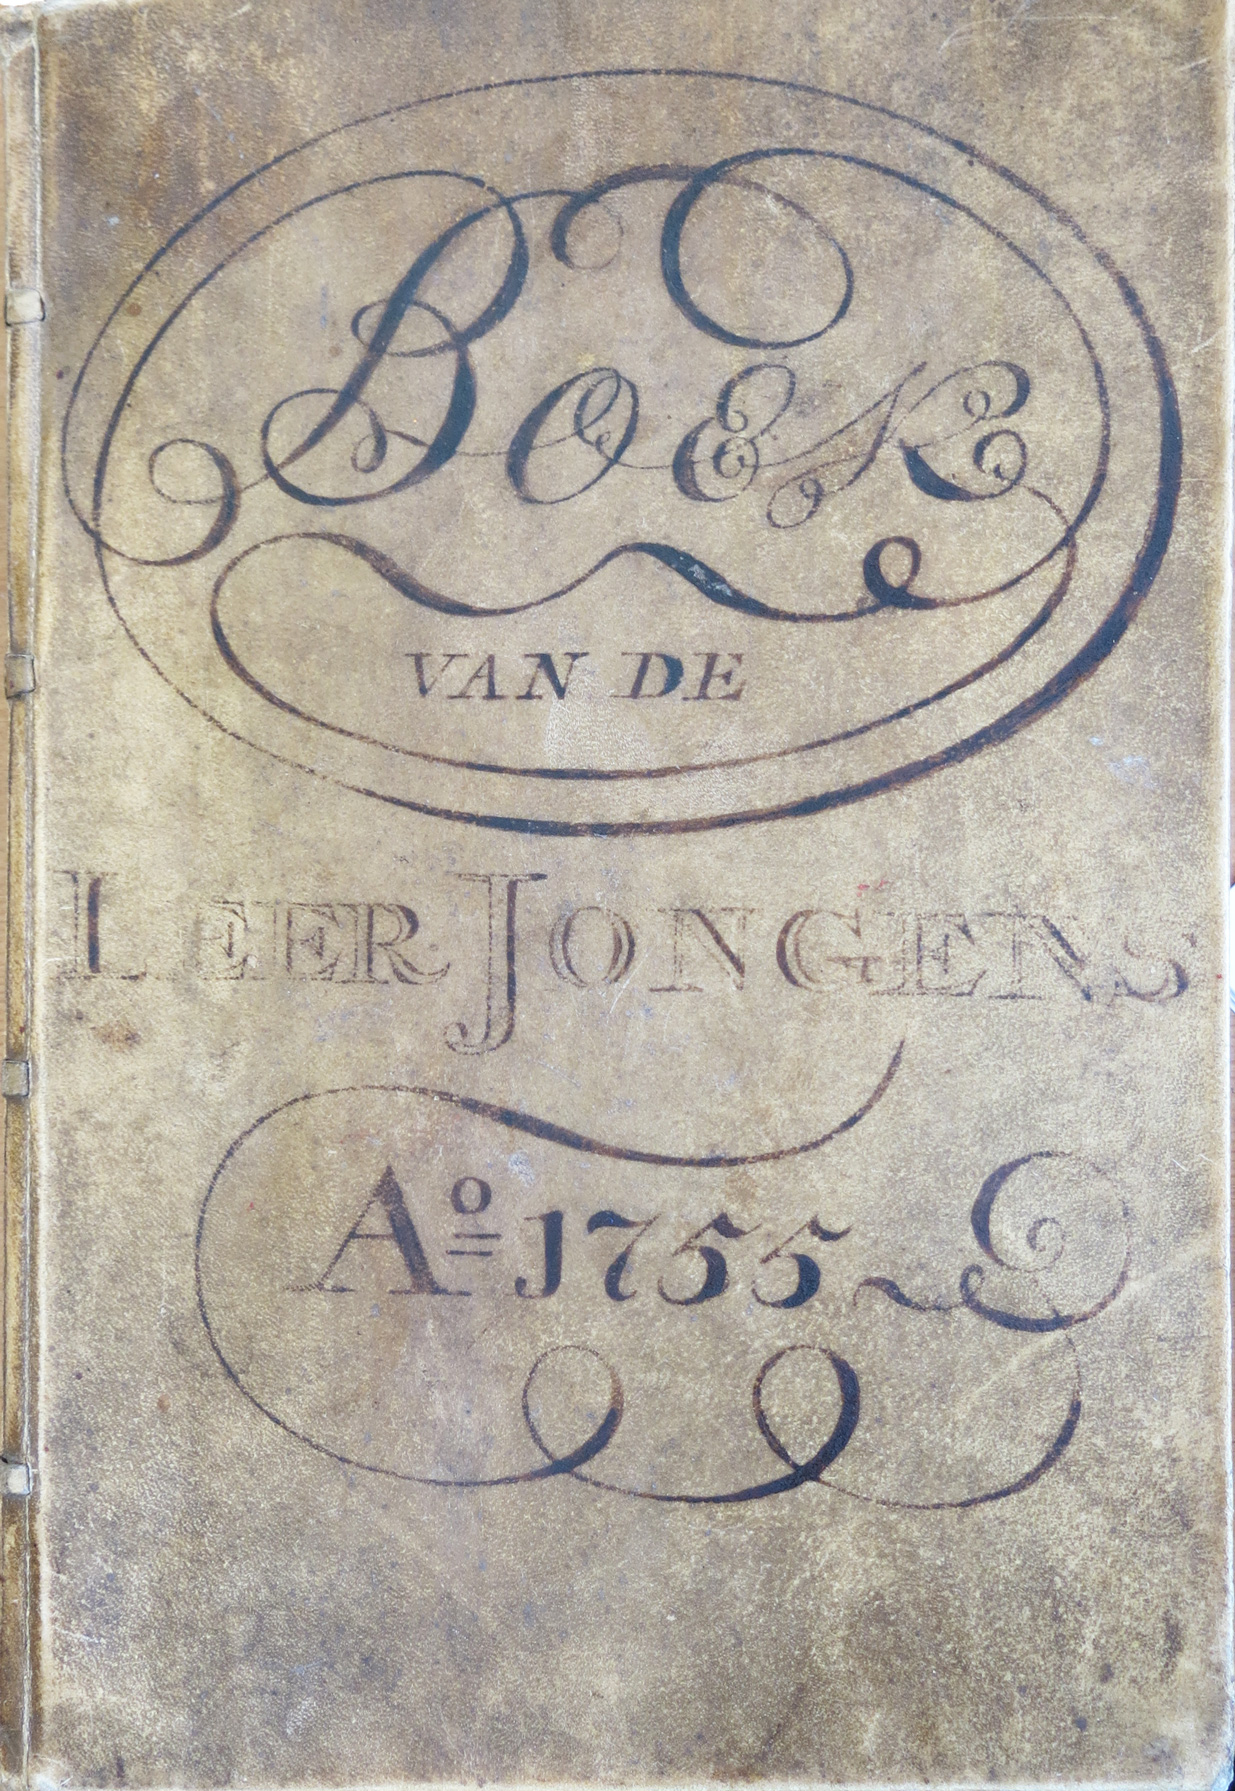 BOEK
VAN DE
LEER JONGENS
Aº 1755